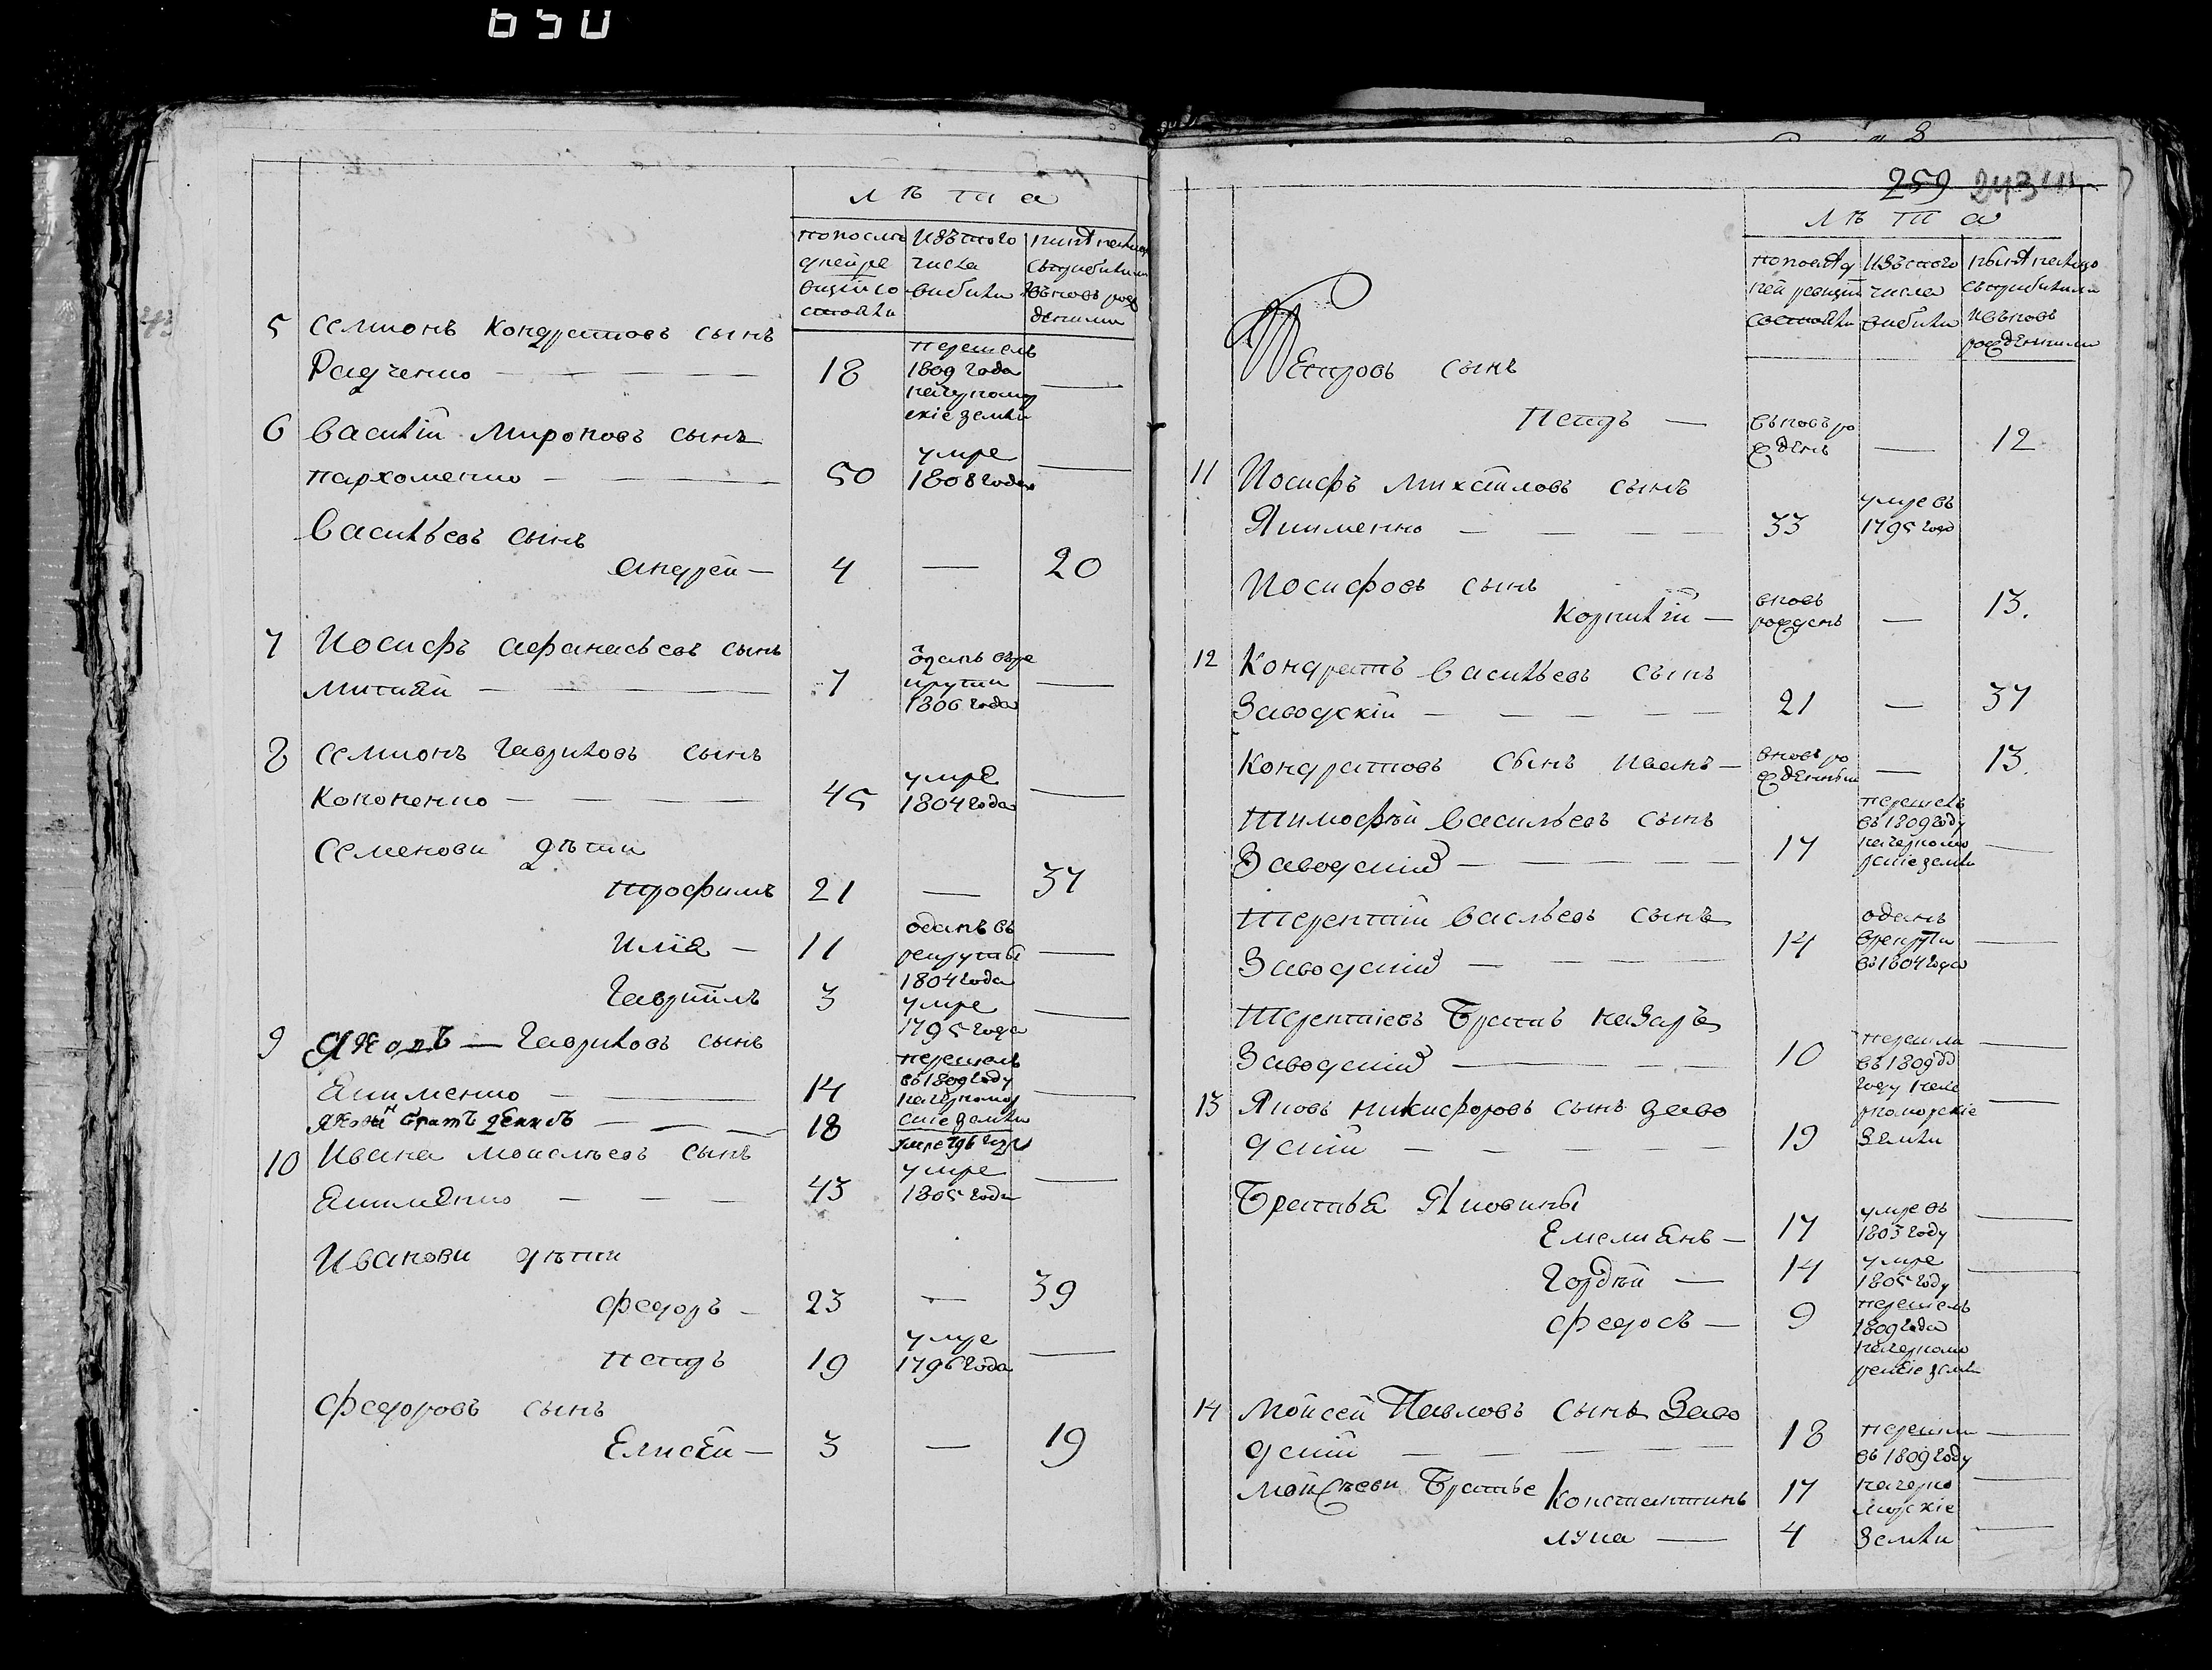 650
лѣта
по послѣ
дней ре
визіи со
стояли
изъ того
числа
выбыли
нынѣ на лицо
съ прибылими
и вновь рож
деними
5 Семионъ Кондратовъ сынъ
Радченко — 18 перешолъ 1809 года на черномор скіе земли —
6 Василій Мироновъ сынъ
Пархоменко — 50 умре 1808 года —
Васильевъ сынъ
Андрей — 4 — 20
7 Иосифъ Афанасьевъ сынъ
7 оданъ въ ре крути 1806 года —
8 Семионъ Гавриловъ сынъ
Кононенко — 45 умре 1804 года —
Семенови дѣти
Трофимъ 21 — 37
Илія — 11 оданъ въ рекруты 1804 года —
Гавриилъ 3 умре 1795 года —
9 Яковъ — Гавриловъ сынъ
Якименко — 14 перешолъ въ 1809 году на черномор скіе земли —
Якова братъ денисъ — 18 умре 796 году
10 Ивана Моисѣевъ сынъ
Якименко — 43 умре 1805 года —
Иванови дѣти
Федоръ — 23 — 39
Петръ 19 умре 1796 года —
Федоровъ сынъ
Елисей — 3 — 19
8
259 243
лѣта
по послѣд
ней ревизіи
состояли
изъ того
числа
выбыли
нынѣ на лицо
съ прибылими
и вновь
рожденними
Петровъ сынъ
Петръ — вновь ро жденъ — 12
11 Иосифъ Михайловъ сынъ
Якименко — 33 умре въ 1795 году
Иосифовъ сынъ
Корнилій — вновь рожденъ — 13.
12 Кондратъ Васильевъ сынъ
Заводскій — 21 — 37
Кондратовъ сынъ Иванъ — вновь ро жденный — 13.
Тимофѣй Васильевъ сынъ
Заводскій — 17 перешолъ въ 1809 году на черномо рские земли —
Терентій Васльевъ сынъ
Заводскій — 14 оданъ врекруты въ 1804 года —
Терентіевъ братъ Назаръ
Заводскій — 10 перешли въ 1809 году на че рноморскіе земли —
13 Яковъ Никифоровъ сынъ Заво
дскій — 19 —
Братья Яковины
Емелианъ — 17 умре въ 1803 году —
Гордѣй — 14 умре 1805 году —
Федосъ — 9 перешолъ 1809 года на черномо рские земли
14 Мойсей Павловъ сынъ Заво
дскій — 18 перешли въ 1809 году на черно морскіе земли —
Мойсѣеви братье Константинъ 17 —
лука — 4 —